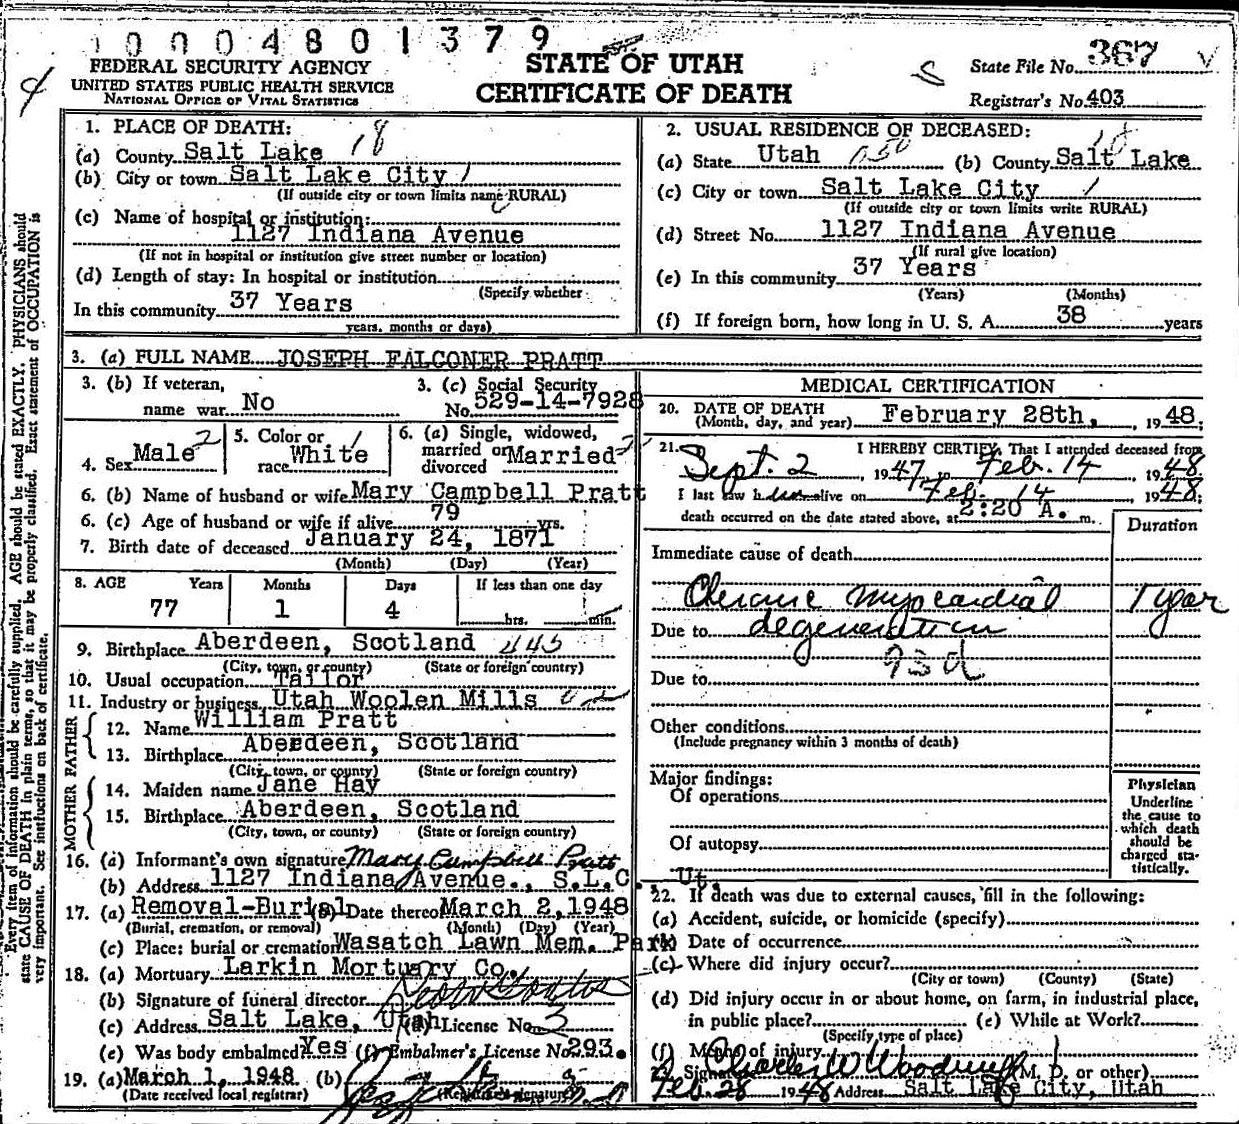 10004801379
4
FEDERAL SECURITY AGENCY
UNITED STATES PUBLIC HEALTH SERVICE
NATIONAL OFFICE OF VITAL STATISTICS
STATE OF UTAH
CERTIFICATE OF DEATH
State File No. 367
Registrar's No. 403
Every item of information should be carefully supplied. AGE should be stated EXACTLY. PHYSICIANS should
state CAUSE OF DEATH in plain terms, so that it may be properly classified. Exact statement of OCCUPATION is
very important. See instructions on back of certificate.
1. PLACE OF DEATH:
(a) County Salt Lake 18
(b) City or town Salt Lake City 1
(If outside city or town limits name RURAL)
(c) Name of hospital or institution:
1127 Indiana Avenue
(If not in hospital or institution give street number or location)
(d) Length of stay: In hospital or institution
(Specify whether
In this community 37 Years
years, months or days)
2. USUAL RESIDENCE OF DECEASED:
(a) State Utah 050 (b) County Salt Lake 18
(c) City or town Salt Lake City 1
(If outside city or town limits write RURAL)
(d) Street No. 1127 Indiana Avenue
(If rural give location)
(e) In this community 37 Years
(Years) (Months)
(f) If foreign born, how long in U. S. A. 38 years
3. (a) FULL NAME JOSEPH FALCONER PRATT
3. (b) If veteran,
name war No
3. (c) Social Security
No. 529-14-7928
4. Sex Male 2
5. Color or
race White 1
6. (a) Single, widowed,
married or
divorced Married 2
6. (b) Name of husband or wife Mary Campbell Pratt
6. (c) Age of husband or wife if alive 79 yrs.
7. Birth date of deceased January 24, 1871
(Month) (Day) (Year)
8. AGE Years Months Days If less than one day
77 1 4 hrs. min.
9. Birthplace Aberdeen, Scotland 445
(City, town, or county) (State or foreign country)
10. Usual occupation Tailor
11. Industry or business Utah Woolen Mills
FATHER
12. Name William Pratt
13. Birthplace Aberdeen, Scotland
(City, town, or county) (State or foreign country)
MOTHER
14. Maiden name Jane Hay
15. Birthplace Aberdeen, Scotland
(City, town, or county) (State or foreign country)
16. (a) Informant's own signature Mary Campbell Pratt
(b) Address 1127 Indiana Avenue., S.L.C., Ut.
17. (a) Removal-Burial (b) Date thereof March 2, 1948
(Burial, cremation, or removal) (Month) (Day) (Year)
(c) Place: burial or cremation Wasatch Lawn Mem. Park
18. (a) Mortuary Larkin Mortuary Co.
(b) Signature of funeral director
(c) Address Salt Lake, Utah (d) License No. 3
(e) Was body embalmed? Yes (f) Embalmer's License No. 293.
19. (a) March 1, 1948 (b)
(Date received local registrar) (Registrar's signature)
MEDICAL CERTIFICATION
20. DATE OF DEATH
(Month, day, and year) February 28th, 1948;
21. I HEREBY CERTIFY, That I attended deceased from
Sept. 2 1947, to Feb. 14 1948
I last saw him alive on Feb. 14, 1948;
death occurred on the date stated above, at 2:20 A. m.
Duration
Immediate cause of death
Chronic myocardial 1 year
Due to degeneration
93d
Due to
Other conditions
(Include pregnancy within 3 months of death)
Major findings:
Of operations
Of autopsy
Physician
Underline
the cause to
which death
should be
charged sta-
tistically.
22. If death was due to external causes, fill in the following:
(a) Accident, suicide, or homicide (specify)
(b) Date of occurrence
(c) Where did injury occur?
(City or town) (County) (State)
(d) Did injury occur in or about home, on farm, in industrial place,
in public place? (e) While at Work?
(Specify type of place)
(f) Means of injury
23. Signature Charles W Woodruff (M. D. or other)
Feb. 28 1948 Address Salt Lake City, Utah